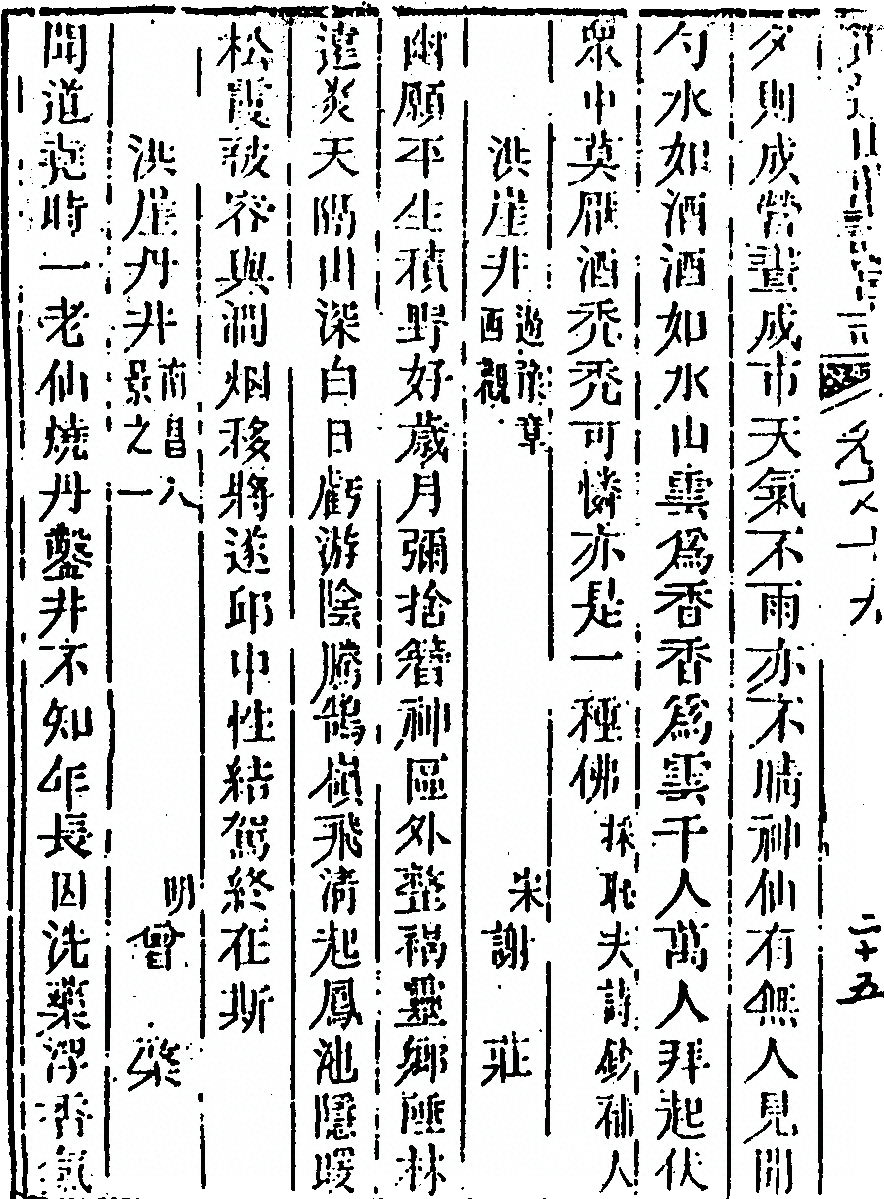 卷之十九
二十五
夕則成營晝成市天氣不雨亦不晴神仙有無人見聞
勺水如酒酒如水山雲為香香為雲千人萬人拜起伏
眾中莫雁酒禿禿可憐亦是一種佛採耻夫詩鈔補入
洪崖井遊豫章西觀 宋謝莊
幽願平生積野好歲月彌捨簪神區外整褐靈鄉垂林
遠炎天隔山深白日虧游陰騰鵠嶺飛清起鳳池隱曖
松霞被容與澗烟移將遂邱中性結駕終在斯
洪崖丹井南昌八景之一 明曾棨
聞道堯時一老仙燒丹鑿井不知年長因洗藥浮香氣